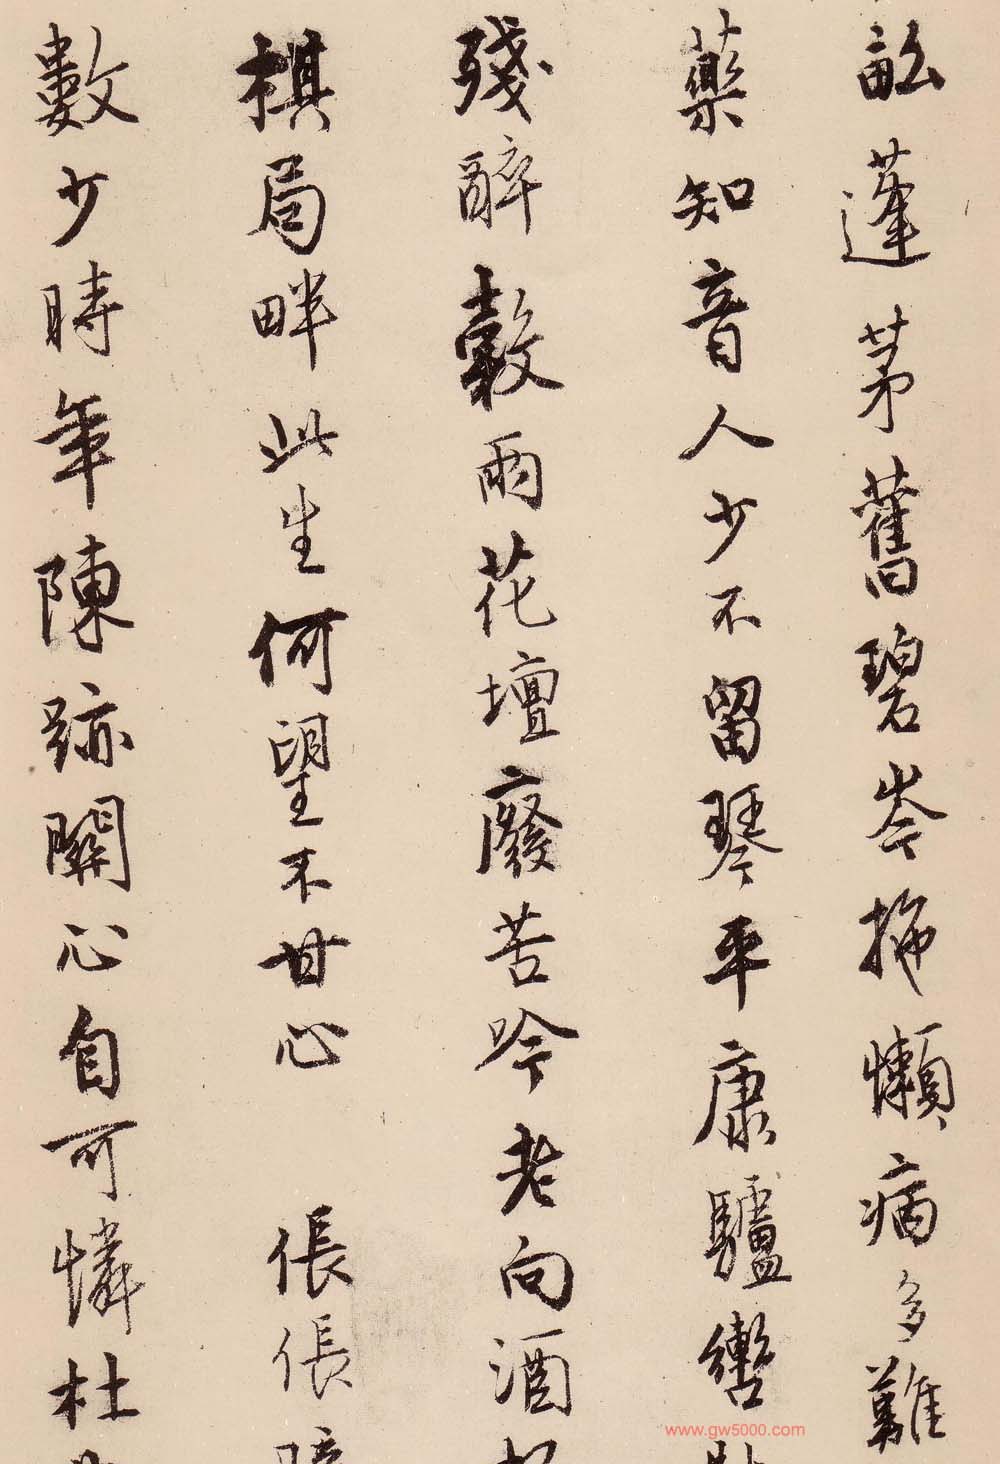 畝蓬茅舊碧岑拖懶病多難
藥知音人少不留琴平康驢轡
殘醉穀雨花壇廢苦吟老向酒
棋局畔此生何望不甘心 倀倀
數少時年陳跡關心自可憐杜
www.gw5000.com